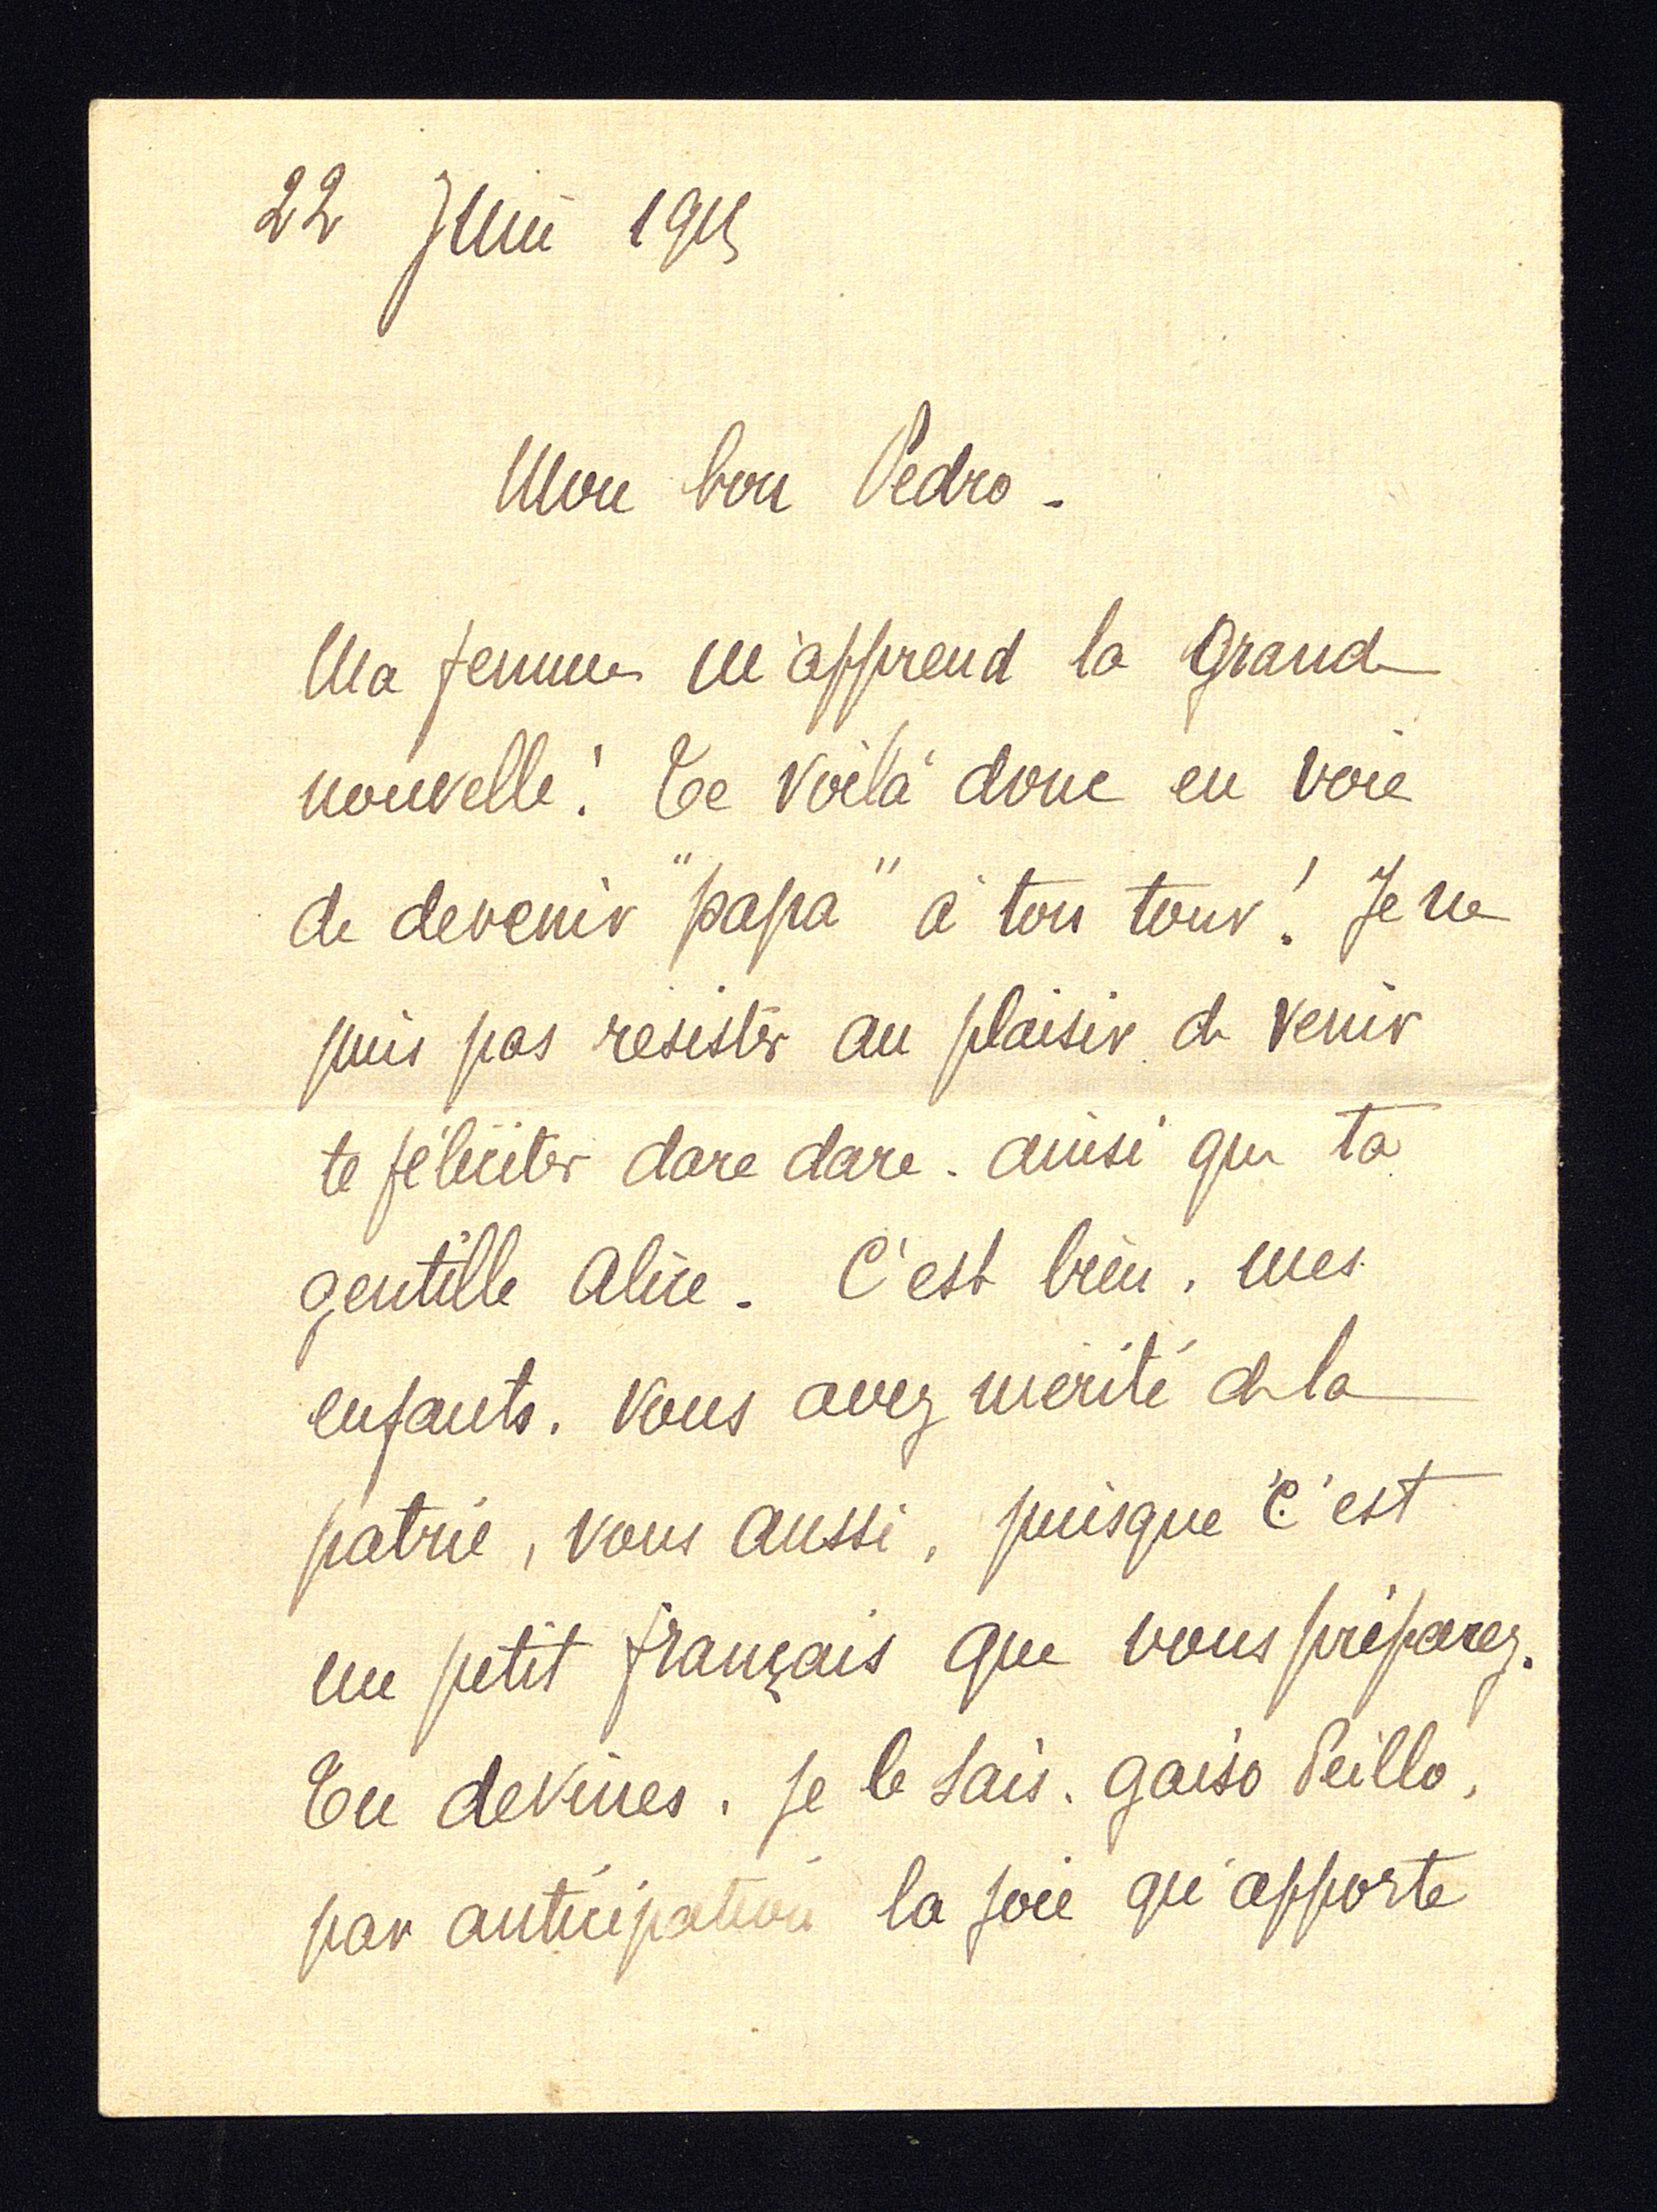 22 Juin 1915
Mon bon Pedro -
Ma femme m'apprend la grande
nouvelle! Te voilà donc en voie
de devenir "papa" à ton tour! Je ne
puis pas resister au plaisir de venir
te féliciter dare dare. ainsi que ta
gentille Alice. C'est bien, mes
enfants. Vous avez mérité de la
patrie, vous aussi, puisque c'est
un petit français que vous préparez.
Tu devines, je le sais. gaiso
par anticipation la joie qu'apporte